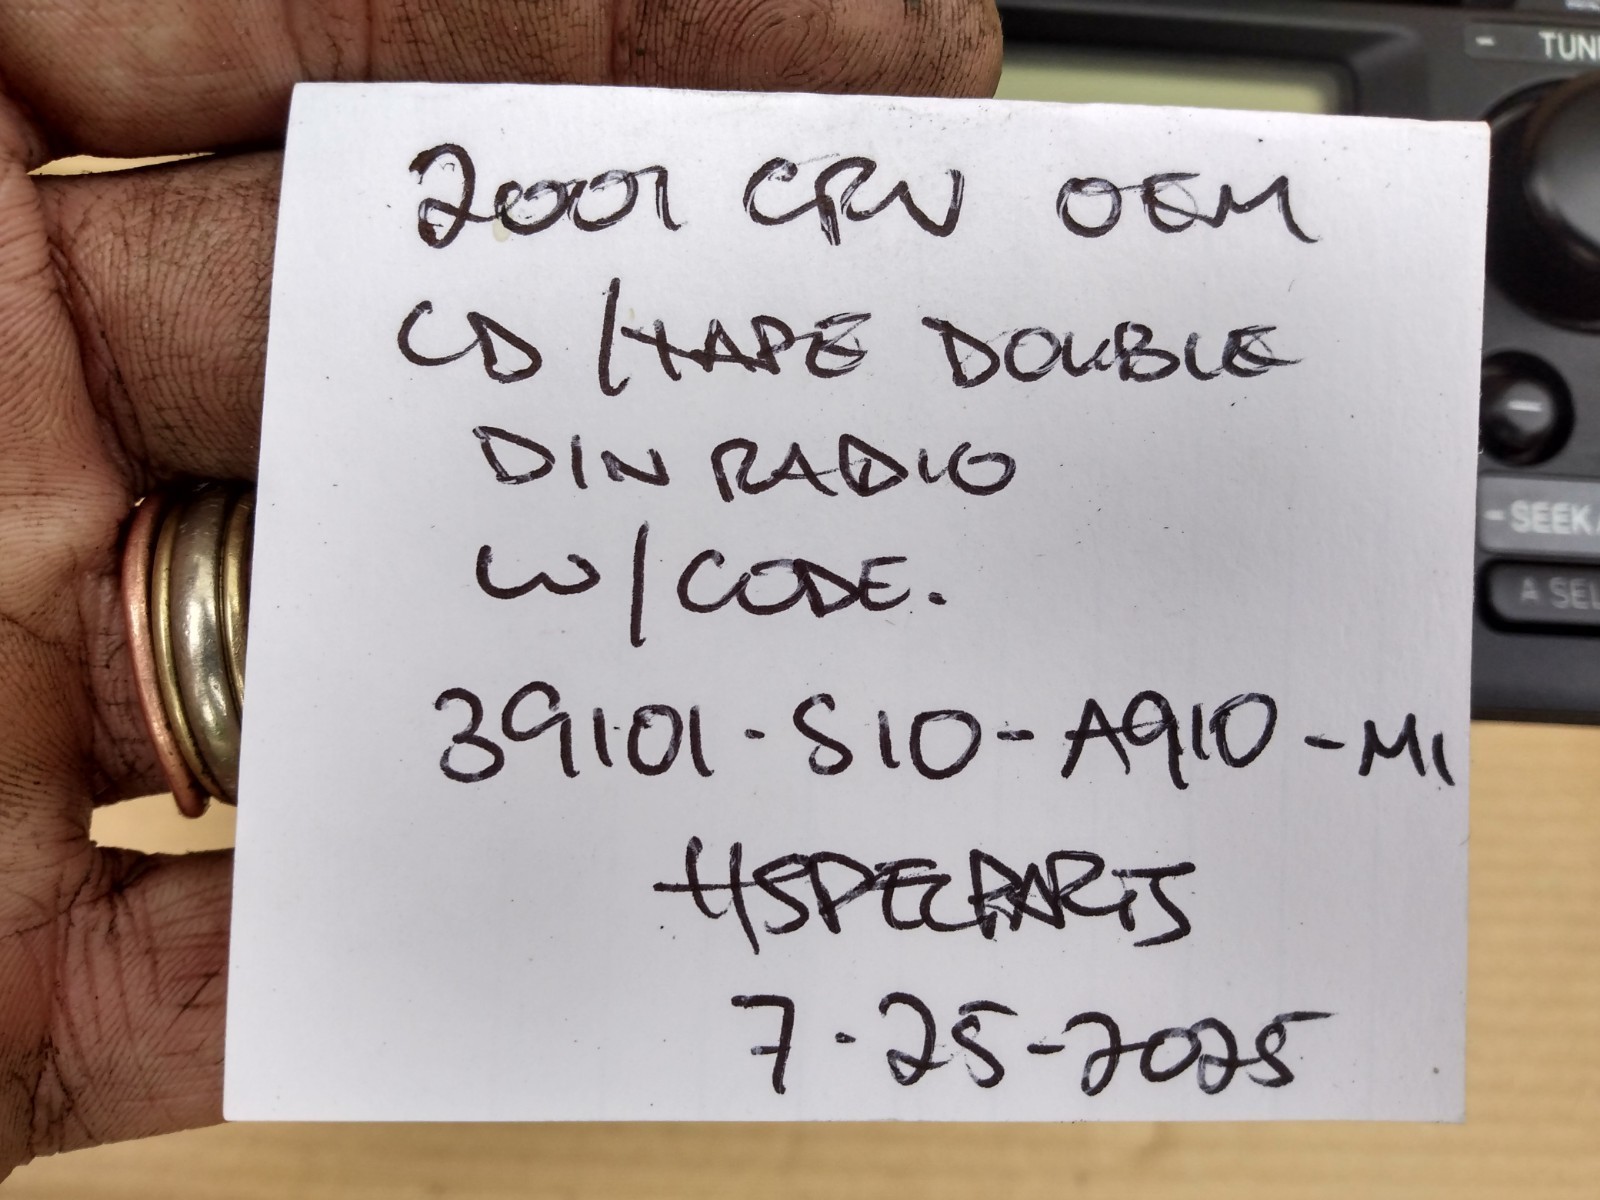 2001 CRV OEM
CD/TAPE DOUBLE
DIN RADIO
W/CODE.
39101-S10-A910-M1
HSPECPARTS
7-25-2025
- TUN
- SEEK
A SEL